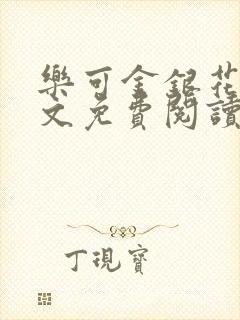 樂可金銀花
文免費閱讀
丁現寶